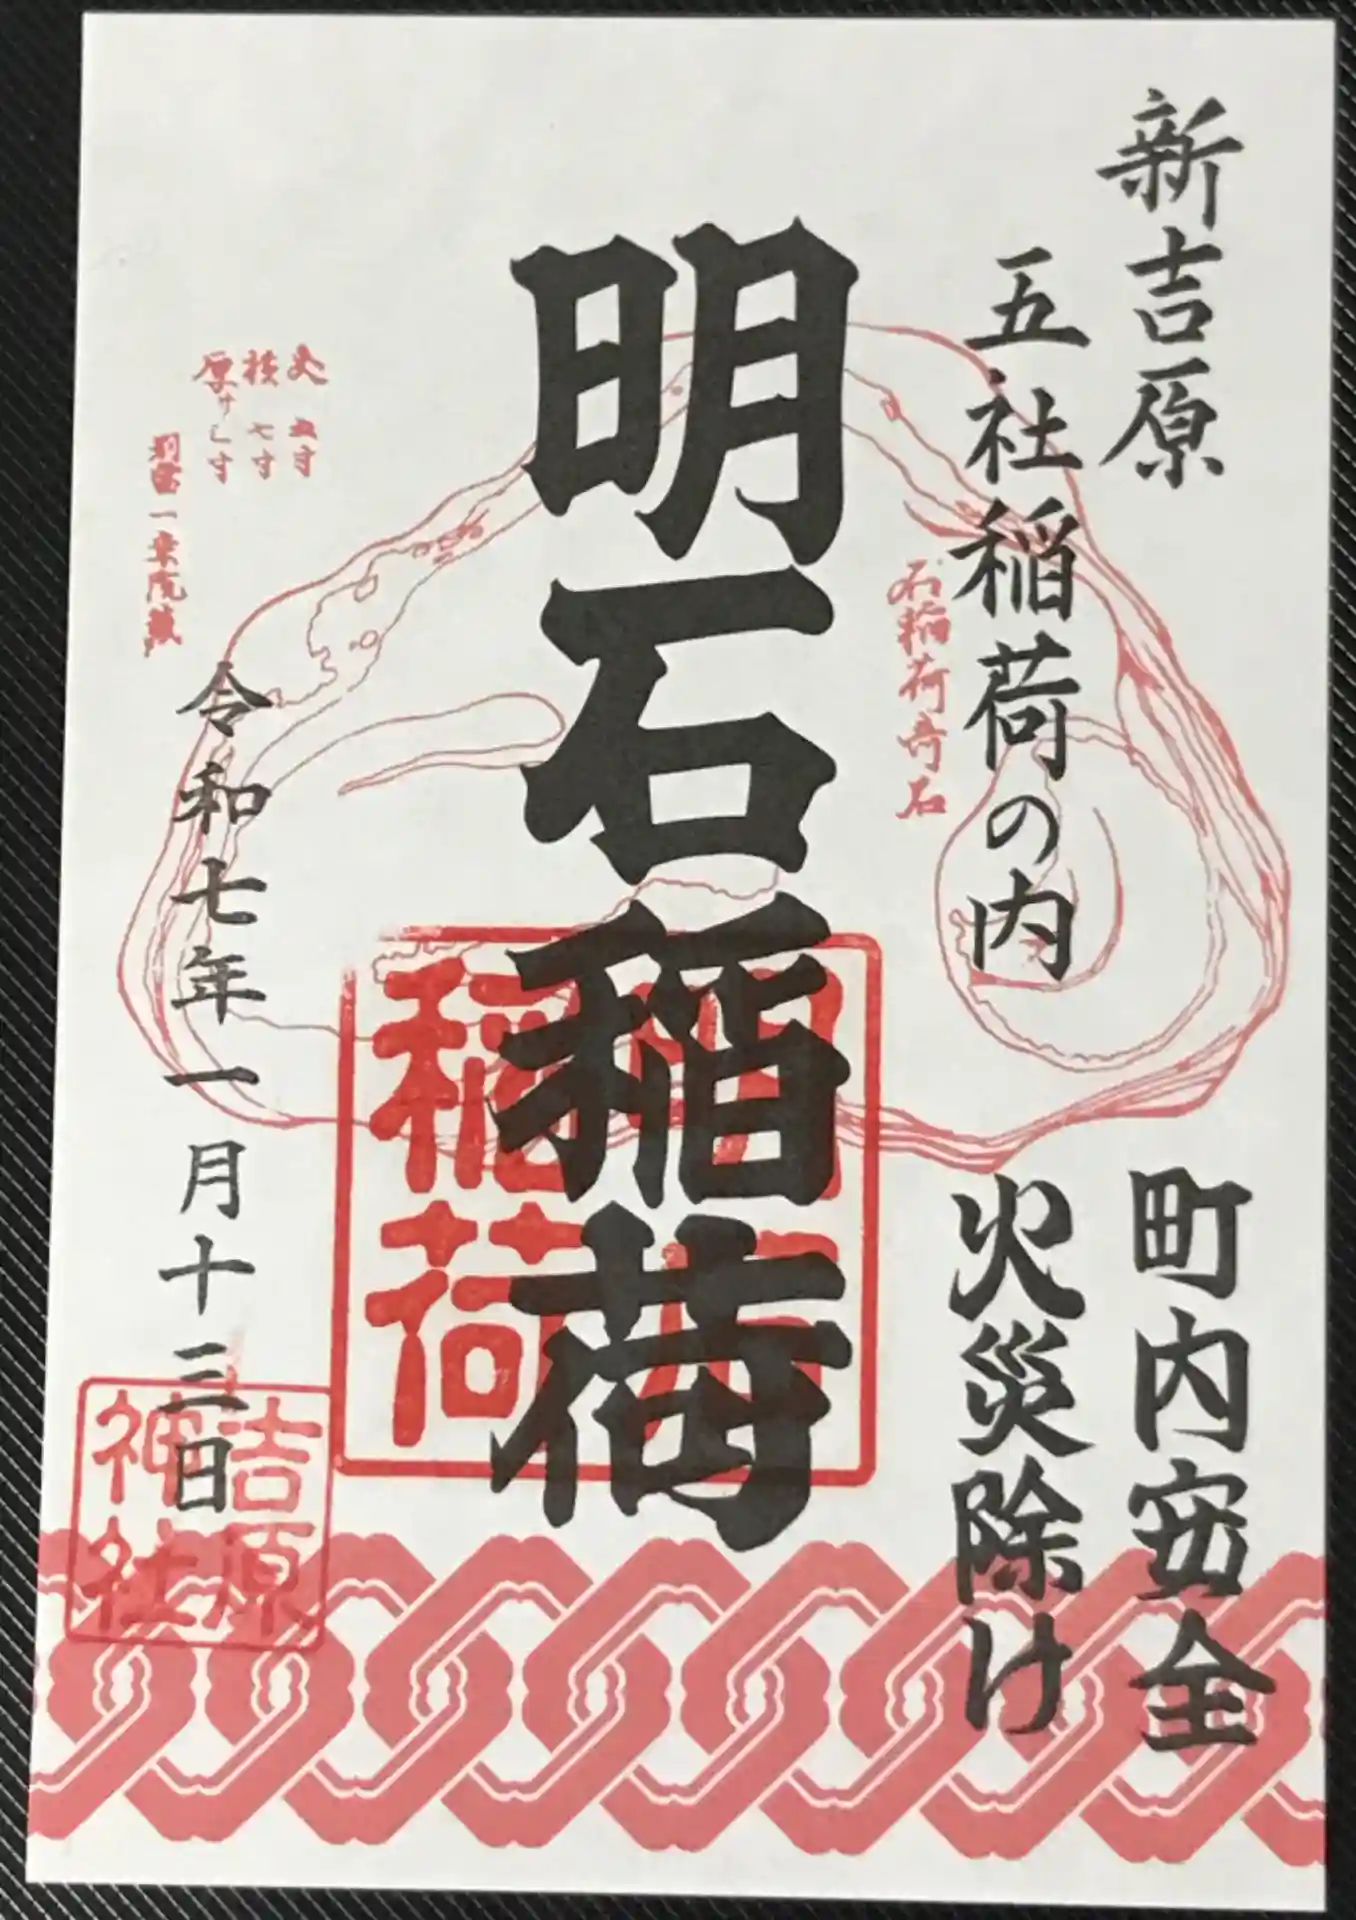 新吉原
五社稲荷の内
町内安全
火災除け
明石稲荷
明石
稲荷
石稲荷奇石
七寸
別當一乗院蔵
令和七年一月十三日
吉原
神社